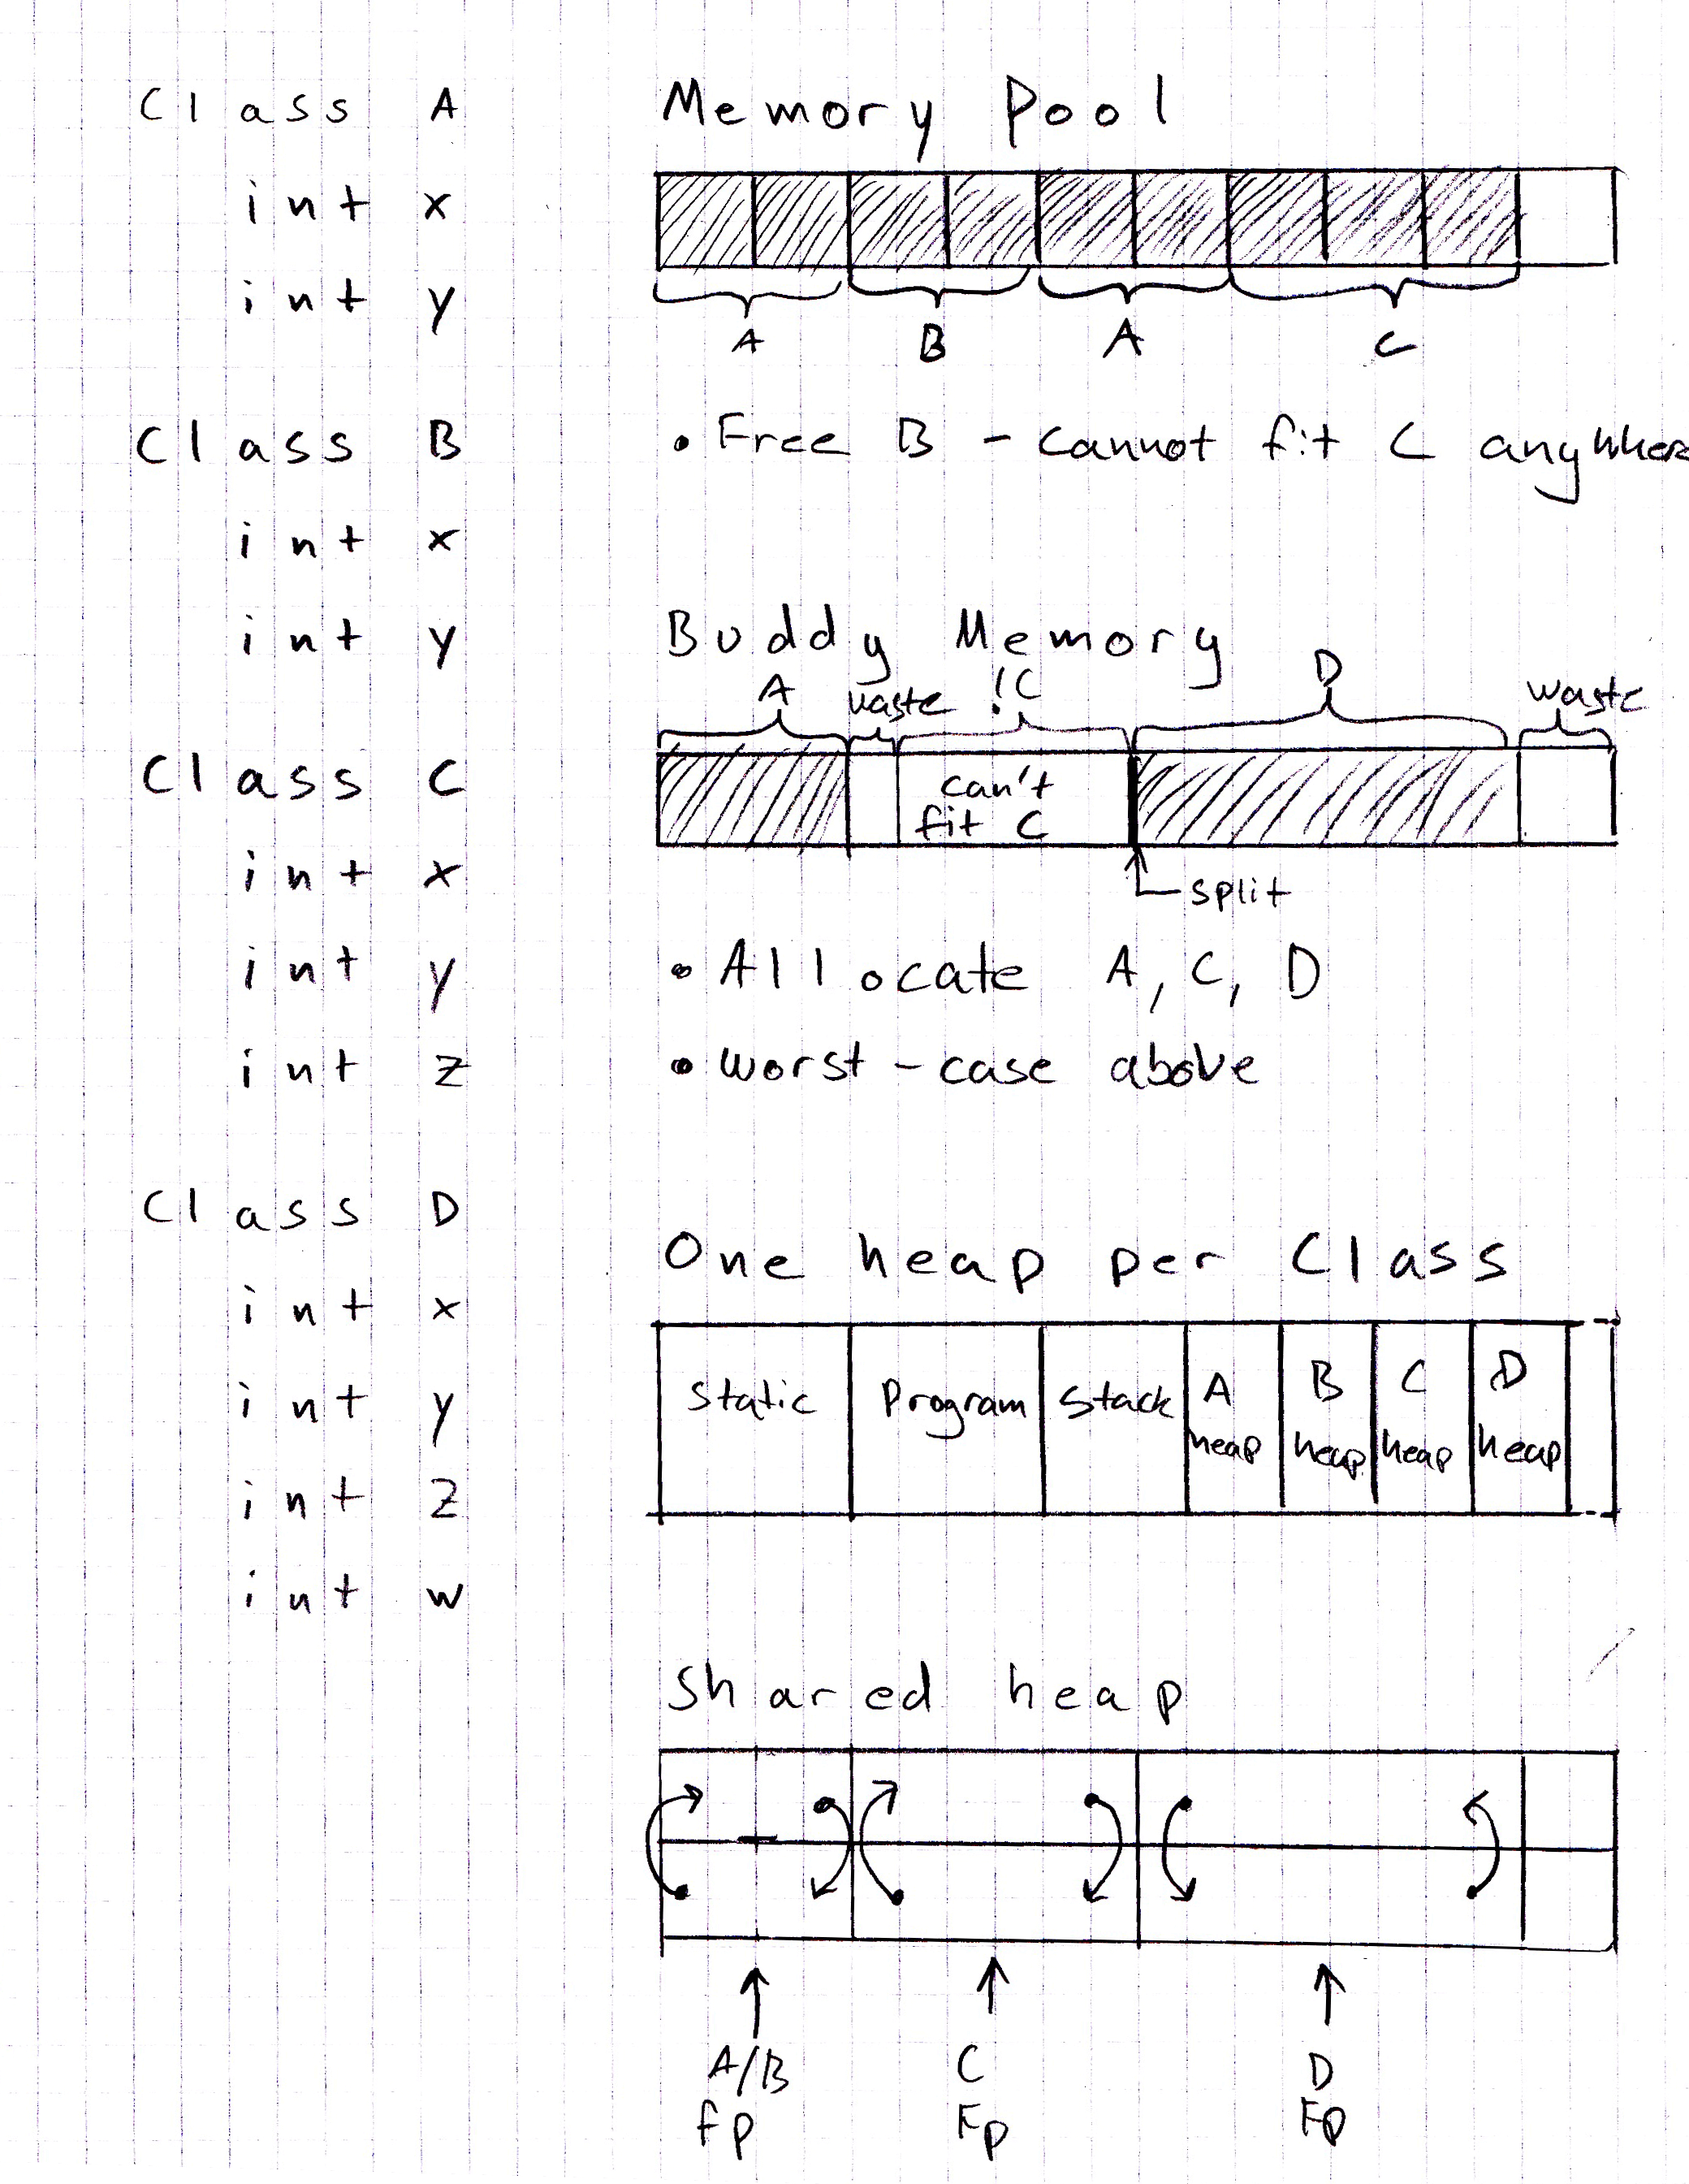 Class A
int x
int y
Class B
int x
int y
Class C
int x
int y
int z
Class D
int x
int y
int z
int w
Memory Pool
A B A C
• Free B - cannot fit C anywhere
Buddy Memory
A waste !C D waste
can't
fit C
split
• Allocate A, C, D
• worst-case above
One heap per Class
Static Program Stack A heap B heap C heap D heap
Shared heap
A/B C D
fp Fp Fp